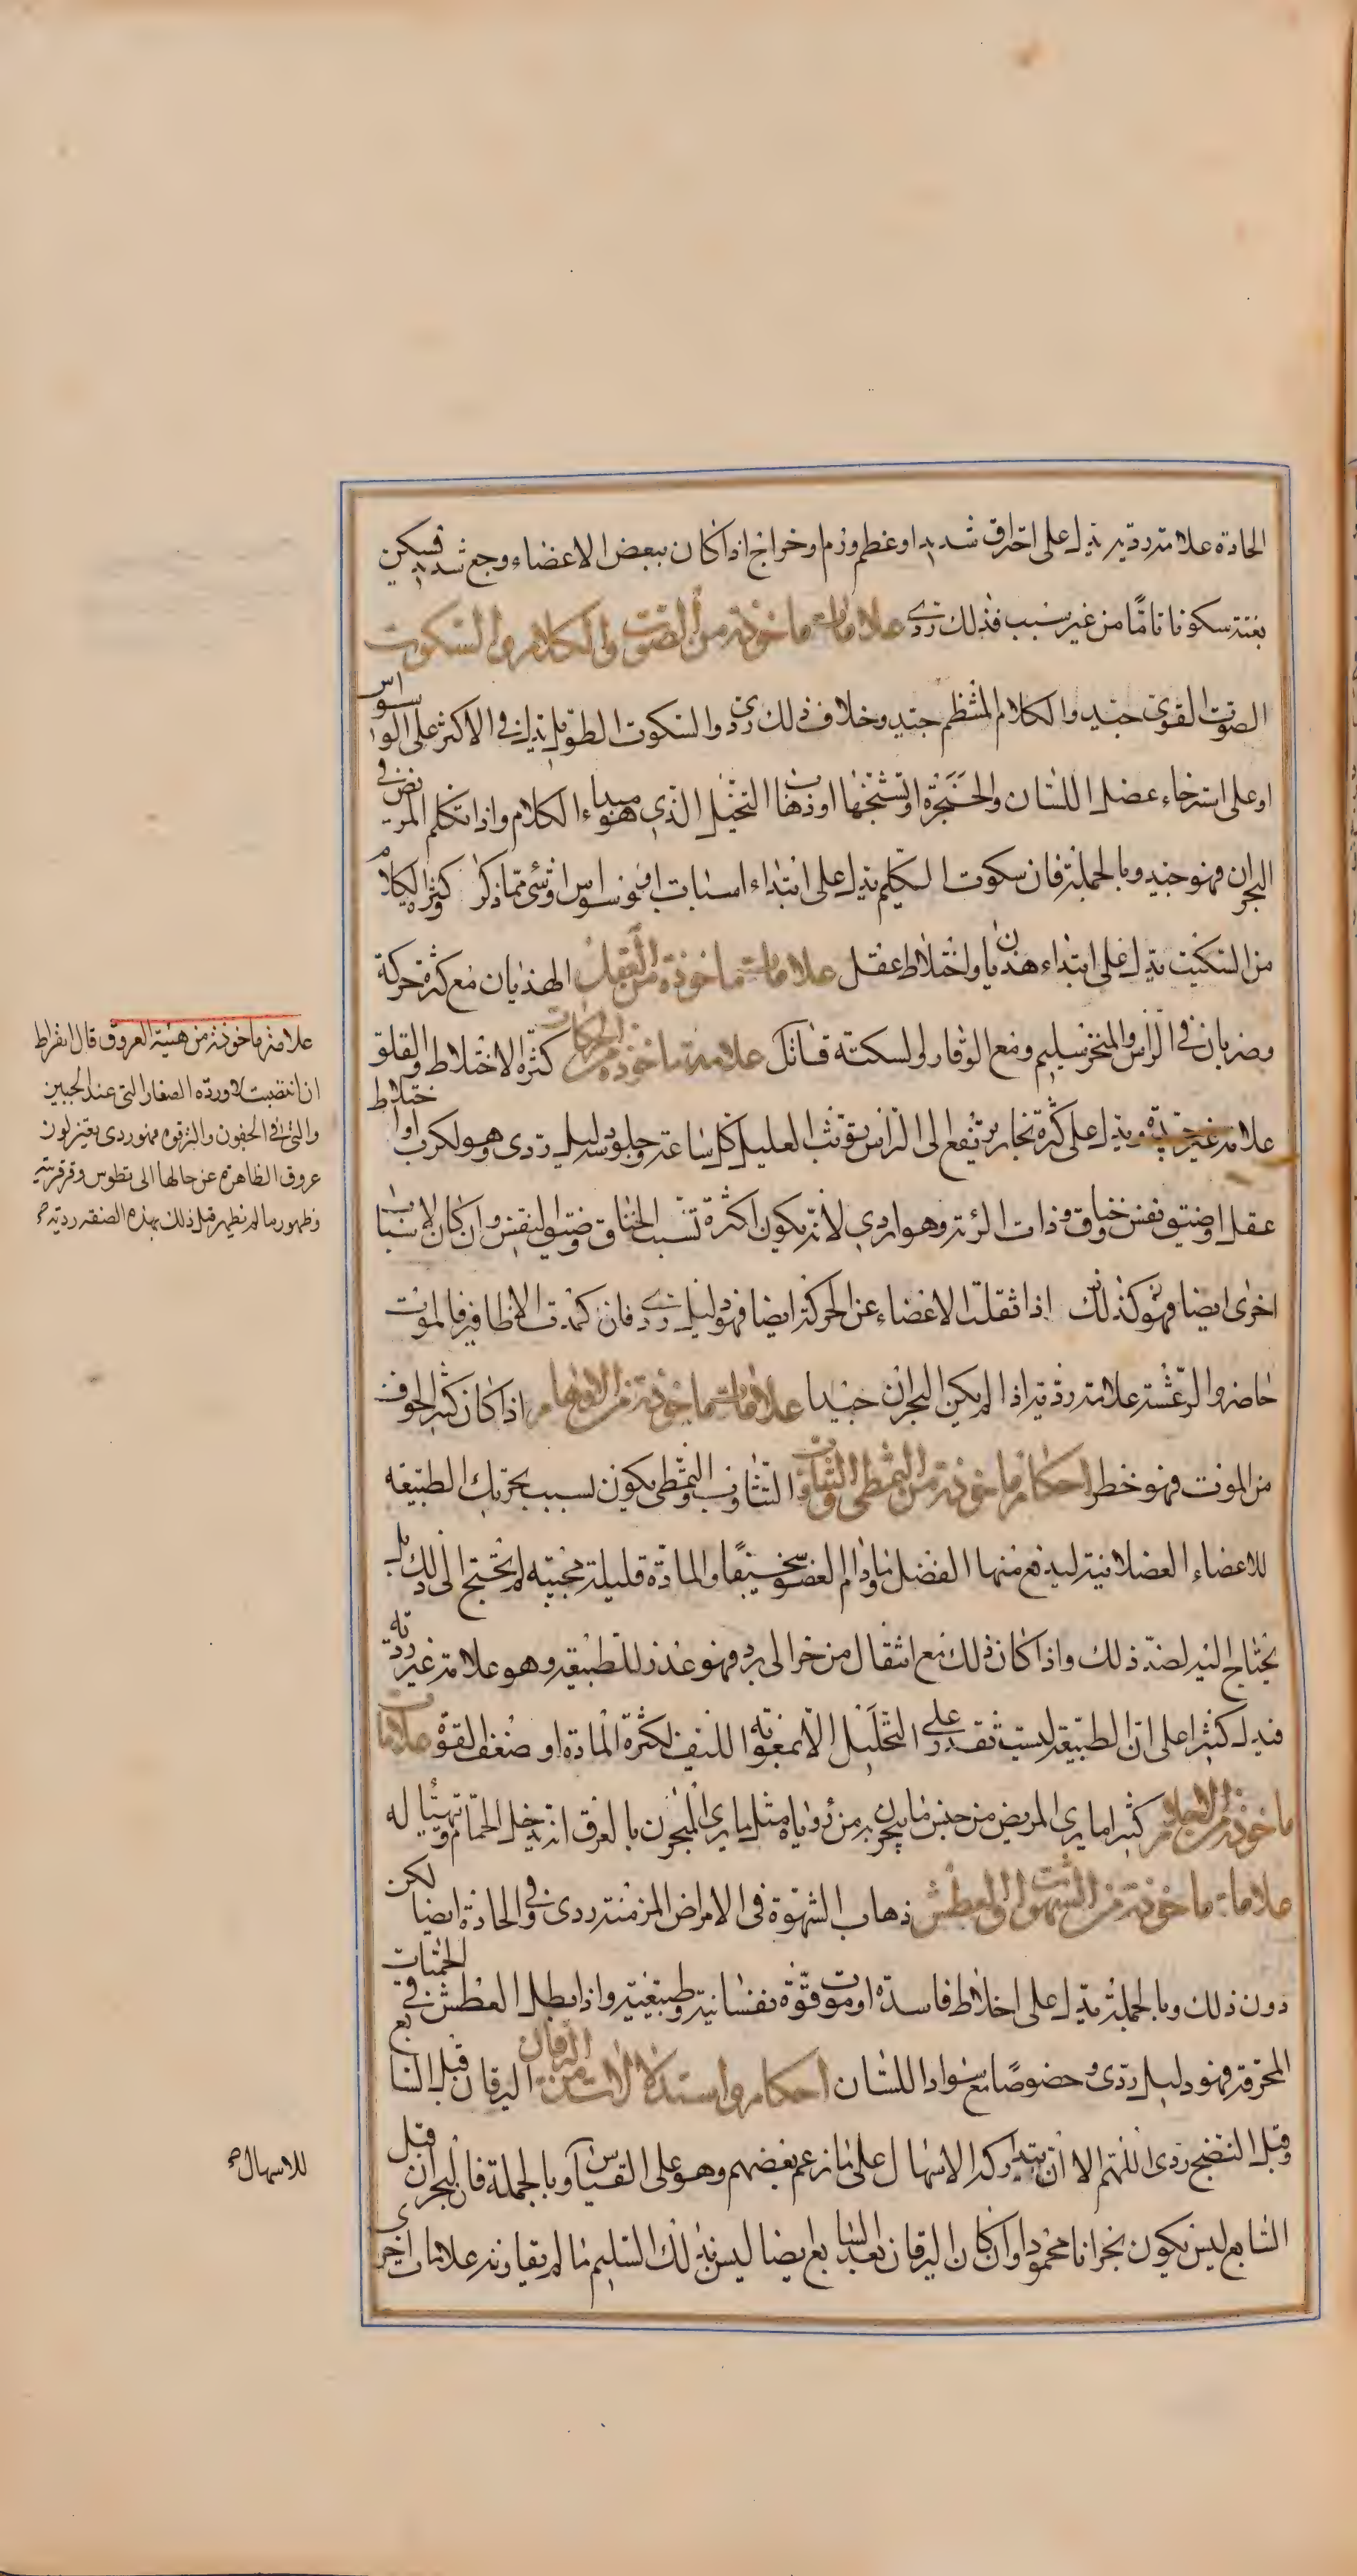 الحادة علامة ردية يدل على احتراق شديد او عظم ورم او خراج اذا كان ببعض الاعضاء وجع شديد فيسكن
بغتة سكونا تامًّا من غير سبب فذلك ردى علامات ماخوذة من الصوت والكلام والسكوت
الصوت القوى جيد والكلام المنتظم جيد وخلاف ذلك ردى والسكوت الطويل يدل فى الاكثر على الوسواس
او على استرخاء عضل اللسان والحنجرة او تشنجها او ذهاب التخيل الذى هو مبداء الكلام واذا تكلم المريض فى
البحران فهو جيد وبالجملة فان سكوت الكليم يدل على ابتداء اسبات او وسواس او شئ مما ذكر وكثرة الكلام
من السكيت يدل على ابتداء هذيان واختلاط عقل علامات ماخوذة من العقل الهذيان مع كثرة حركة
وضربان فى الرأس والمنخر سليم ومع الوقار والسكتة قاتل علامة ماخوذة من الحركات كثرة الاختلاط والقلق
علامة غير جيدة ويدل على كثرة بخار يرتفع الى الرأس توثب العليل كل ساعة وجلوسه دليل ردى وهو لكرب او اختلاط
عقل او ضيق نفس خناق وذات الرئة وهو اردى لانه يكون اكثرة تسبب الخناق وضيق النفس وان كان لاسباب
اخرى ايضا فهو كذلك اذا ثقلت الاعضاء عن الحركة ايضا فهو دليل ردى فان كمدت الاظافير فالموت
حاضر والرعشة علامة ردية اذا لم يكن البحران جيدا علامات ماخوذة من الاوهام اذا كان كثير الخوف
من الموت فهو خطر احكام ماخوذة من التمطى والتثاوب التثاوب والتمطى يكون بسبب تحريك الطبيعة
للاعضاء العضلانية ليدفع منها الفضل وما دام العضو سخيفًا والمادة قليلة مجيبه لم يحتج الى ذلك بل
يحتاج اليه لضد ذلك واذا كان ذلك مع انتقال من حر الى برد فهو عذر للطبيعه وهو علامة غير ردية
فيدل كثيرا على ان الطبيعة ليست تقدر على التحليل الا بمعونة الليف لكثرة المادة او ضعف القوة علامات
ماخوذة من الاحلام كثيرا ما يرى المريض من جنس ما يبحر به من رؤياه مثل ما يرى المبحرون بالعرق انه يدخل الحمام وتهيئا له
علامات ماخوذة من الشهوات والعطش ذهاب الشهوة فى الامراض المزمنة ردى وفى الحادة ايضا لكن
دون ذلك وبالجملة يدل على اخلاط فاسدة او موت قوة نفسانية وطبيعية واذا بطل العطش فى الحميات
المحرقة فهو دليل ردى وخصوصًا مع سواد اللسان احكام واستدلالات من اليرقان اليرقان قبل السابع
وقبل النضج ردى اللهم الا ان يتداركه الاسهال على ما زعم بعضهم وهو على القياس وبالجملة فان البحران قبل
السابع ليس يكون بحرانا محمودا وان كان اليرقان بعد السابع ايضا ليس بذلك السليم ما لم يقاونه علامات اخرى
علامة ماخوذة من هيئة العروق قال ابقراط
ان انقضبت الاوردة الصغار التى عند الجبين
والتى فى الجفون والترقوة فهو ردى بغير لون
عروق الظاهرة عن حالها الى تطوس وقرفرية
وظهور ما لم يظهر قبل ذلك بهذه الصفه ردية
للاسهال